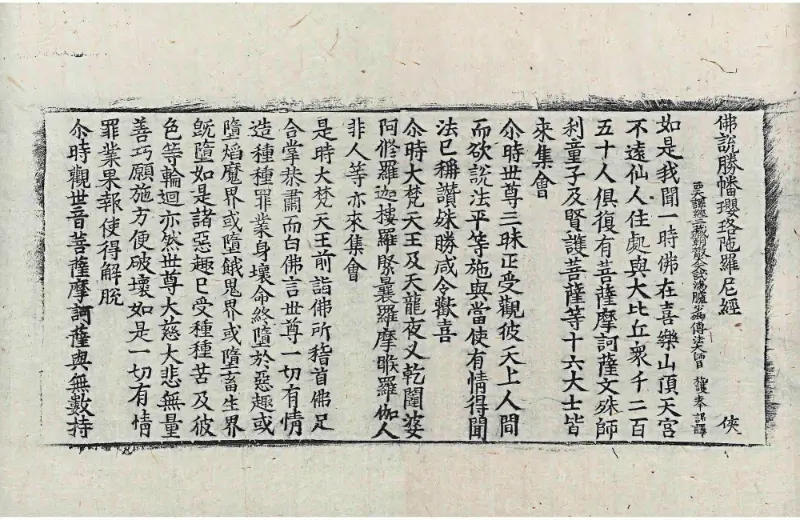 佛說勝幡瓔珞陁羅尼經 俠
西天譯經三藏朝散大夫試鴻臚少卿傳法大師 施護奉 詔譯
如是我聞一時佛在喜樂山頂天宮
不遠仙人住處與大比丘衆千二百
五十人俱復有菩薩摩訶薩文殊師
利童子及賢護菩薩等十六大士皆
來集會
尒時世尊三昧正受觀彼天上人間
而欲說法平等施與當使有情得聞
法已稱讃殊勝咸令歡喜
尒時大梵天王及天龍夜叉乾闥婆
阿修羅迦樓羅緊曩羅摩睺羅伽人
非人等亦來集會
是時大梵天王前詣佛所稽首佛足
合掌恭肅而白佛言世尊一切有情
造種種罪業身壞命終墮於惡趣或
墮焰魔界或墮餓鬼界或墮畜生界
旣墮如是諸惡趣已受種種苦及彼
色等輪迴亦然世尊大慈大悲無量
善巧願施方便破壞如是一切有情
罪業果報使得解脫
尒時觀世音菩薩摩訶薩與無數持